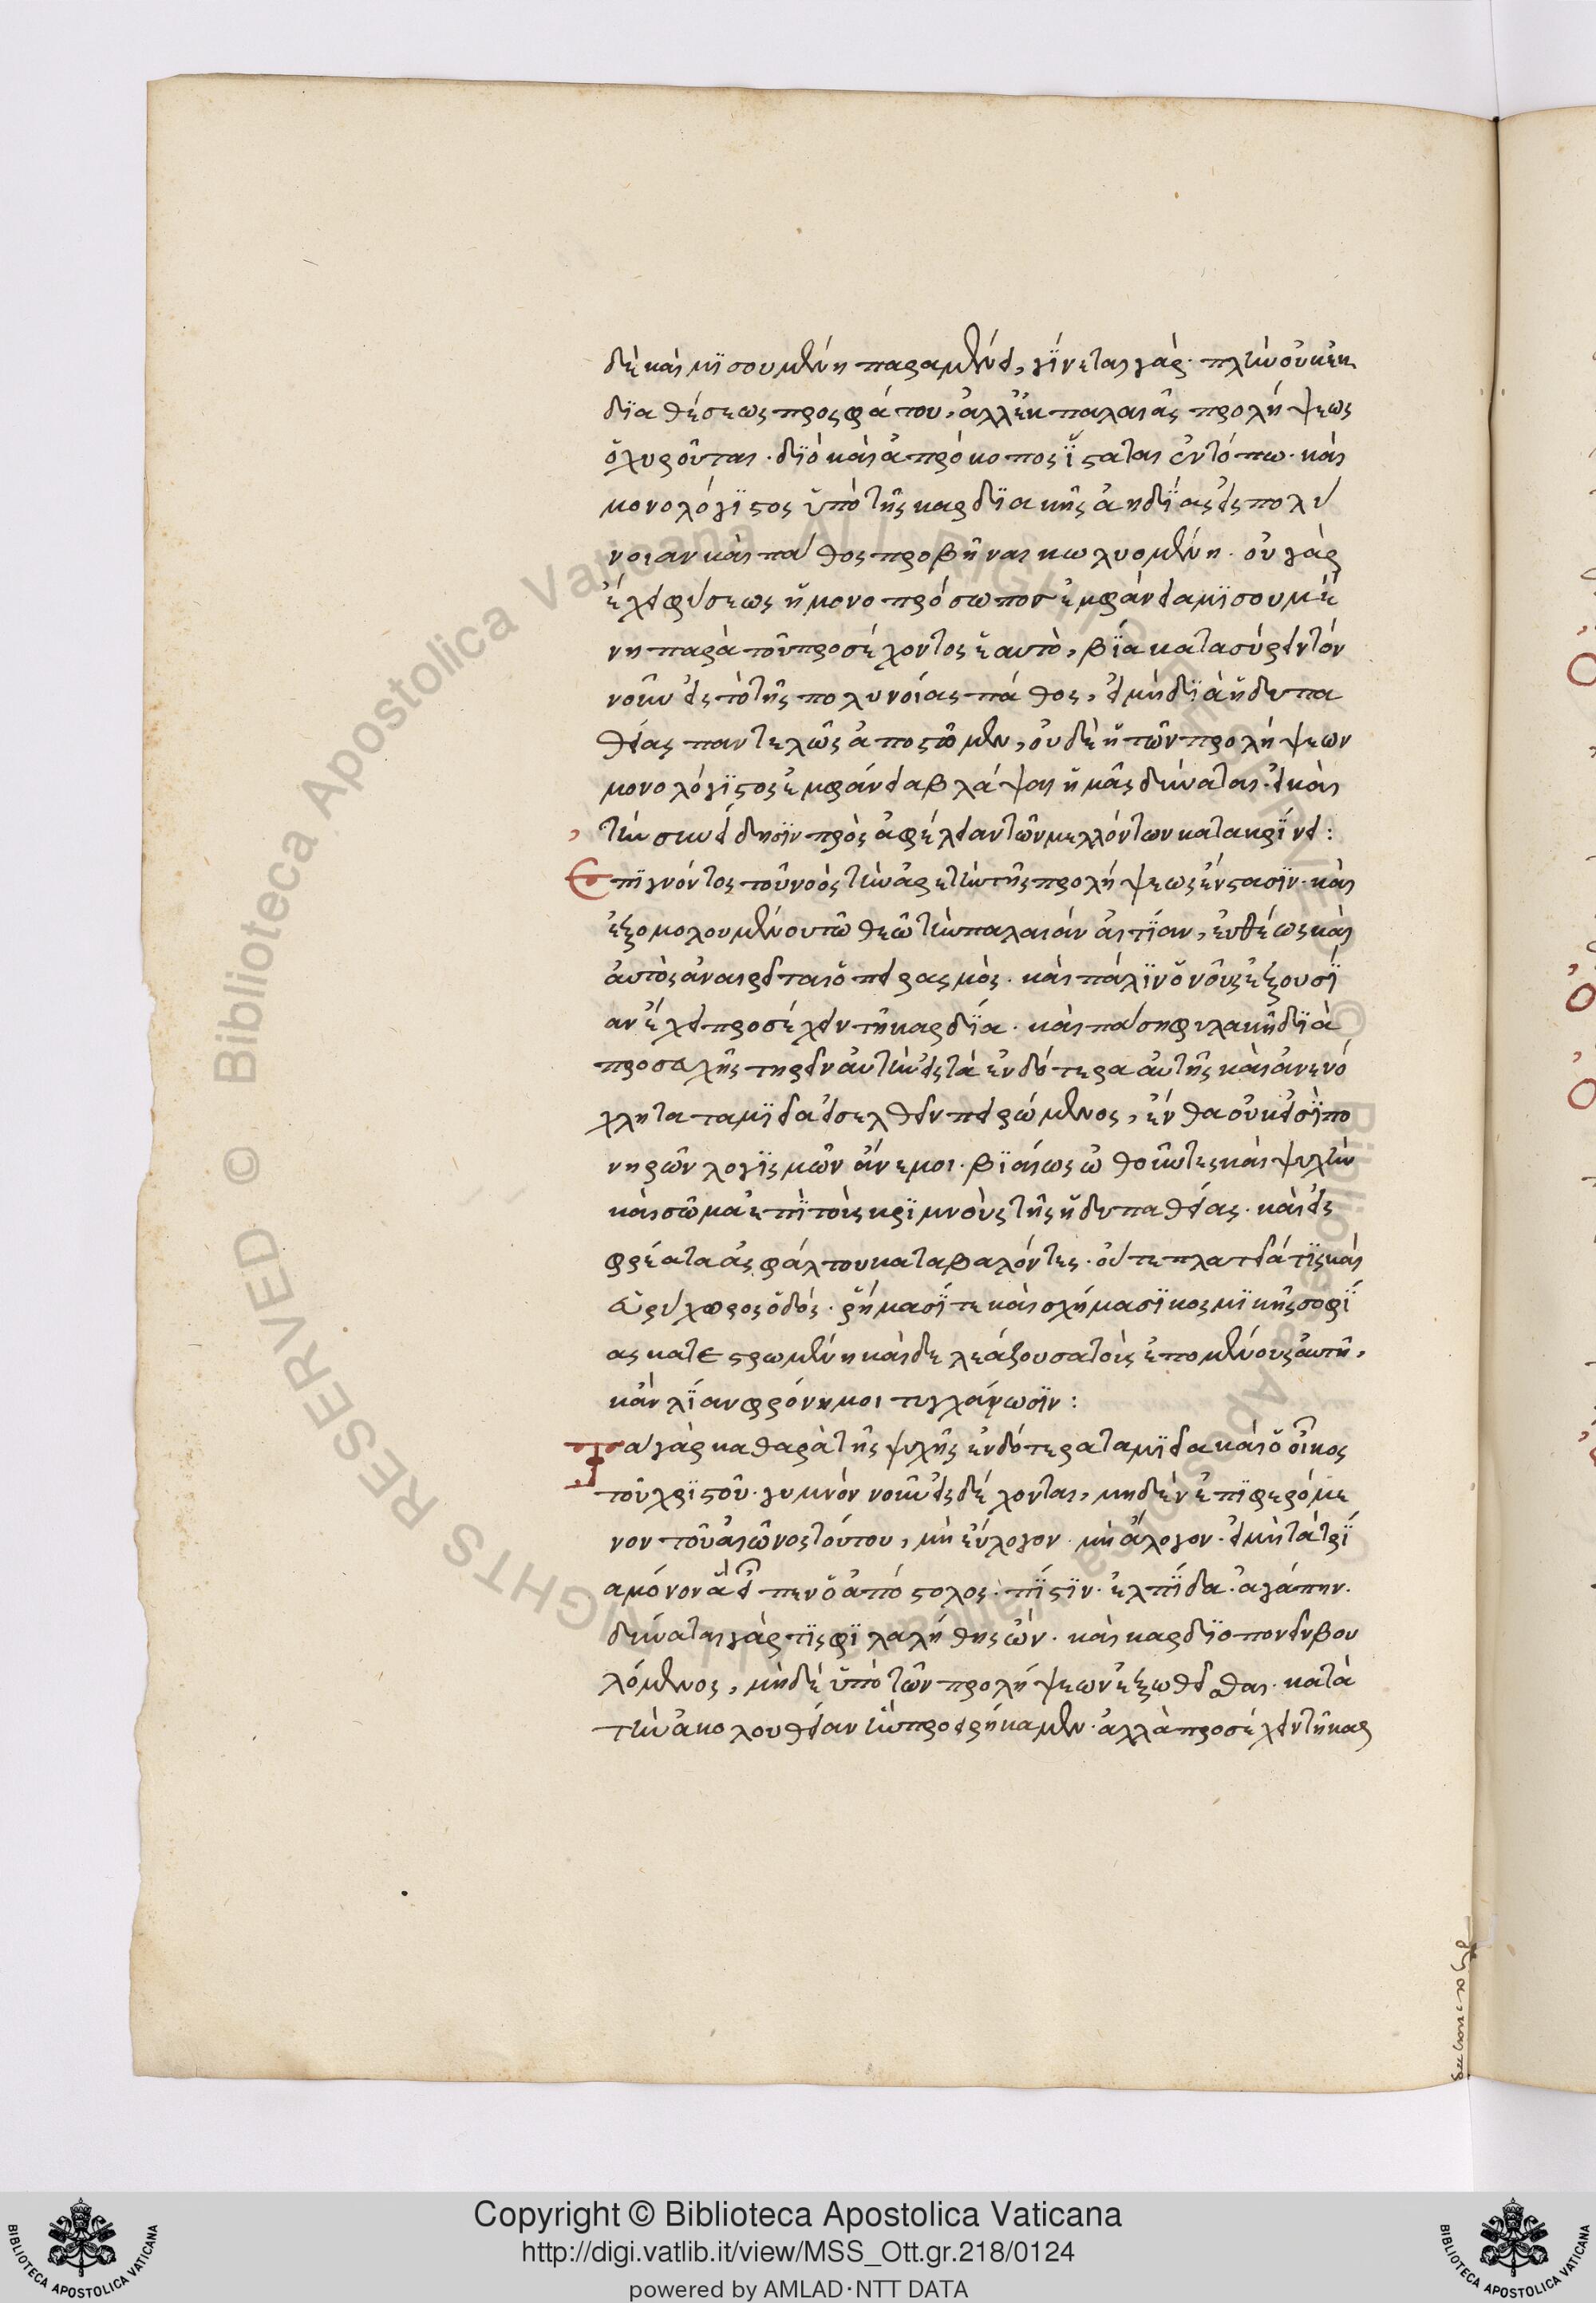 δὲ καὶ μϊσουμένη παραμένει, γΐνεται γάρ· πλὴν οὐκ ἐκ
δϊαθέσεως προσφάτου, ἀλλ' ἐκ παλαιᾶς προλήψεως
ὀχυροῦται· δϊὸ καὶ ἀπρόκοπος ἵσταται ἐν τόπω· καὶ
μονολόγϊστος ὑπὸ τῆς καρδϊακῆς ἀηδΐας εἰς πολύ
νοιαν καὶ πάθος προβῆναι κωλυομένη· οὐ γὰρ
ἔχει φύσεως ἡ μονοπρόσωπος ἐμφάνεια μϊσουμέ
νη παρὰ τοῦ προσέχοντος ἑαυτὸ, βΐα κατασύρειν τὸν
νοῦν εἰς τὸ τῆς πολυνοίας πάθος, εἰ μὴ δϊὰ ἡδυπα
θείας παντελῶς ἀποστῶμεν, οὐδὲ ἡ τῶν προλήψεων
μονολόγϊστος ἐμφάνεια βλάψαι ἡμᾶς δύναται· εἰ καὶ
τὴν συνείδησϊν πρὸς ἀφέλειαν τῶν μελλόντων κατακρΐνει:
Επϊγνόντος τοῦ νοὸς τὴν ἀρετὴν τῆς προλήψεως ἔνστασϊν· καὶ
ἐξομολουμένου τῶ θεῶ τὴν παλαιὰν αἰτΐαν, εὐθέως καὶ
αὐτὸς ἀναιρεῖται ὁ πειρασμὸς· καὶ πάλϊν ὁ νοῦς ἐξουσΐ
αν ἔχει προσέχειν τῆ καρδΐα· καὶ πάση φυλακῆ δϊὰ
προσευχῆς τηρεῖν αὐτὴν εἰς τὰ ἐνδότερα αὐτῆς καὶ ἀνενό
χλητα ταμϊεῖα εἰσελθεῖν πειρώμενος, ἔνθα οὐκ εἰσΐ πο
νηρῶν λογϊσμῶν ἄνεμοι· βϊαίως ὠθοῦντες καὶ ψυχὴν
καὶ σῶμα ἐπὶ τοὺς κρϊμνοὺς τῆς ἡδυπαθείας· καὶ εἰς
φρέατα ἀσφάλτου καταβαλόντες· οὔτε πλατεῖά τϊς καὶ
εὐρύχωρος ὁδός· ῥήμασΐ τε καὶ σχήμασϊ κοσμϊκῆς σοφΐ
ας κατεστρωμένη καὶ δελεάζουσα τοὺς ἑπομένους αὐτῆ,
κὰν λΐαν φρόνημοι τυγχάνωσϊν:
Τὰ γὰρ καθαρὰ τῆς ψυχῆς ἐνδότερα ταμϊεῖα καὶ ὁ οἶκος
τοῦ χρϊστοῦ· γυμνὸν νοῦν εἰσδέχονται, μηδὲν ἐπϊφερόμε
νον τοῦ αἰῶνος τούτου, μὴ εὔλογον· μὴ ἄλογον· εἰ μὴ τὰ τρΐ
α μόνον ἃ εἶπεν ὁ ἀπόστολος· πΐστϊν· ἐλπΐδα· ἀγάπην·
δύναται γάρ τϊς φϊλαλήθης ὢν· καὶ καρδϊοπονεῖν βου
λόμενος, μηδὲ ὑπὸ τῶν προλήψεων ἐξωθεῖσθαι· κατὰ
τὴν ἀκολουθείαν ἣν προειρήκαμεν· ἀλλὰ προσέχειν τῆ καρ
Copyright © Biblioteca Apostolica Vaticana
http://digi.vatlib.it/view/MSS_Ott.gr.218/0124
powered by AMLAD·NTT DATA